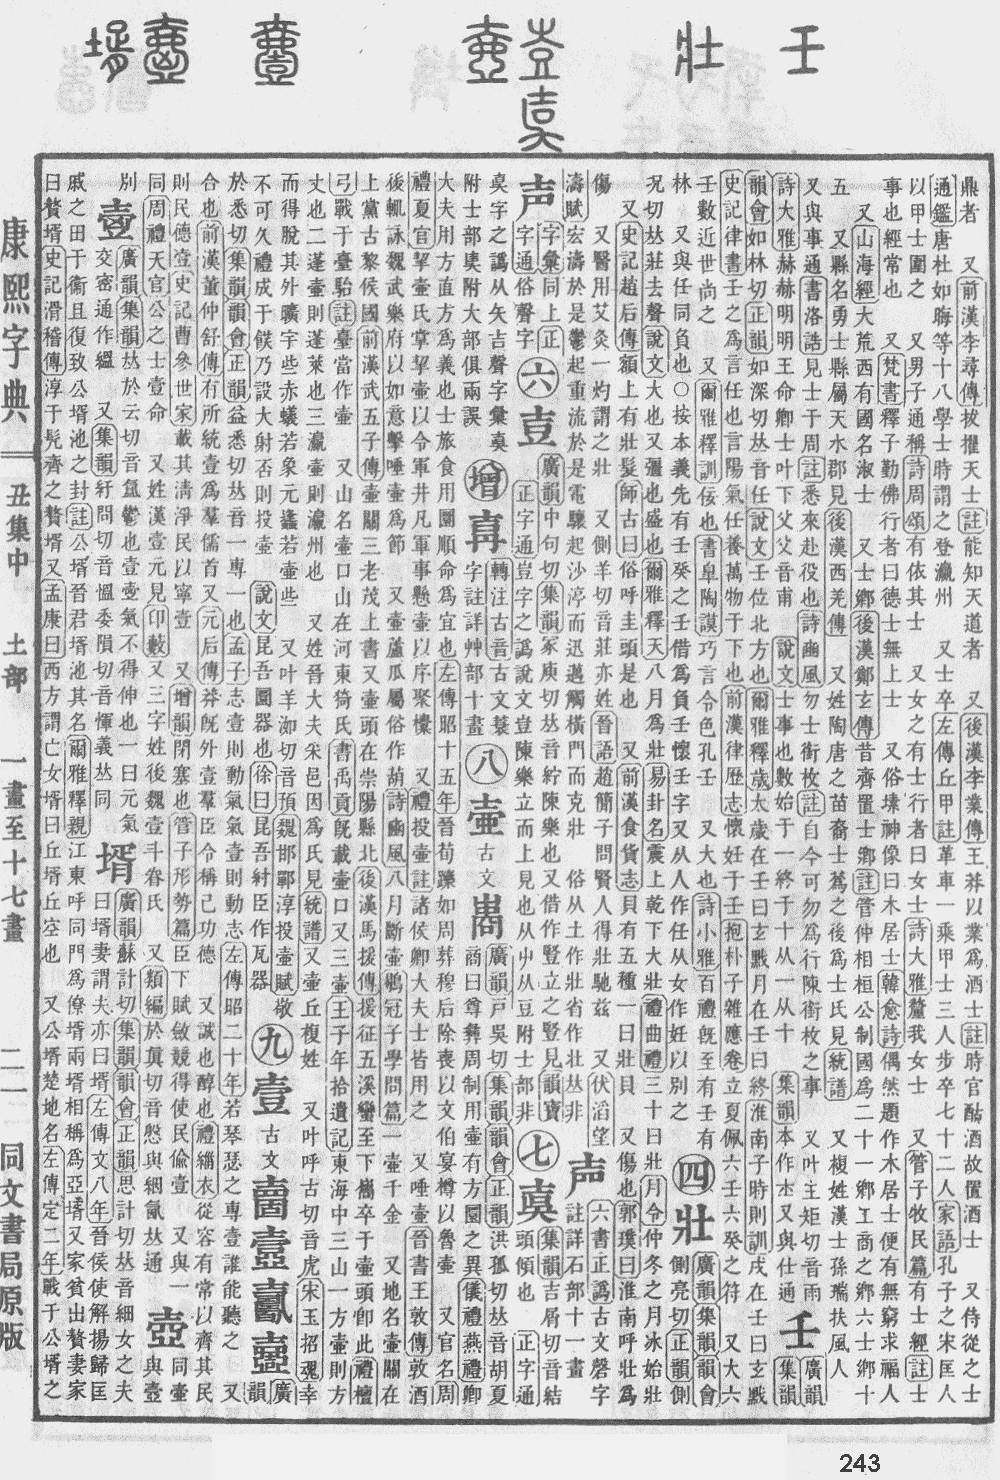 壬
壯
壴
㚖
壺
壹
壼
壻
鼎者 又前漢李尋傳拔擢天士註能知天道者 又後漢李業傳王莽以業為酒士註時官酤酒故置酒士 又侍從之士
通鑑唐杜如晦等十八學士時謂之登瀛州 又士卒左傳丘甲註革車一乘甲士三人步卒七十二人家語孔子之宋匡人
以甲士圍之 又男子通稱詩周頌有依其士 又女之有士行者曰女士詩大雅釐我女士 又管子牧民篇有士經註士
事也經常也 又梵書釋子勤佛行者曰德士無上士 又俗塐神像曰木居士韓愈詩偶然題作木居士便有無窮求福人
又山海經大荒西有國名淑士 又士鄕後漢鄭玄傳昔齊置士鄕註管仲相桓公制國為二十一鄕工商之鄕六士鄕十
五 又縣名勇士縣屬天水郡見後漢西羌傳 又姓陶唐之苗裔士蔿之後為士氏見統譜 又複姓漢士孫瑞扶風人
又與事通書洛誥見士于周註悉來赴役也詩豳風勿士銜枚註自今可勿為行陳銜枚之事 又叶主矩切音雨
詩大雅赫赫明明王命卿士叶下父父音甫 說文士事也數始于一終于十从一从十 集韻本作又與仕通 壬 廣韻集韻
韻會如林切正韻如深切𠀤音任說文壬位北方也爾雅釋歲太歲在壬曰玄黓月在壬曰終淮南子時則訓戌在壬曰玄黓
史記律書壬之為言任也言陽氣任養萬物于下也前漢律歷志懷妊于壬抱朴子雜應卷立夏佩六壬六癸之符 又大六
壬數近世尚之 又爾雅釋訓佞也書臯陶謨巧言令色孔壬 又大也詩小雅百禮旣至有壬有
林 又與任同負也○按本義先有壬癸之壬借為負壬懷壬字又从人作任从女作妊以別之 四 壯 廣韻集韻韻會側亮切正韻側
況切𠀤莊去聲說文大也又彊也盛也爾雅釋天八月為壯易卦名震上乾下大壯禮曲禮三十曰壯月令仲冬之月冰始壯
又史記趙后傳額上有壯髮師古曰俗呼圭頭是也 又前漢食貨志貝有五種一曰壯貝 又傷也郭璞曰淮南呼壯為
傷 又醫用艾灸一灼謂之壯 又側羊切音莊亦姓晉語趙簡子問賢人得壯馳茲 又伏滔望
濤賦宏濤於是鬱起重流於是電驤起沙渟而迅邁觸橫門而克壯 俗从土作壮省作壮𠀤非 声 六書正譌古文磬字註詳石部十一畫
声 字彙同上正字通俗聲字 六 壴 廣韻中句切集韻冢庾切𠀤音紵陳樂也又借作豎立之豎見韻寶正字通豈字之譌說文壴陳樂立而上見也从屮从豆附士部非 七 㚖 集韻吉屑切音結頭傾也 正字通
㚖字之譌从矢吉聲字彙㚖附士部㚖附大部俱兩誤 增 壵 字註詳艸部十畫 八 壷 古文 廣韻戸吳切集韻韻會正韻洪狐切𠀤音胡夏商曰尊彝周制用壷有方圜之異儀禮燕禮卿
大夫用方壷直方為義也士旅食用圜順命為宜也左傳昭十五年晉荀躒如周葬穆后除喪以文伯宴樽以魯壷 又官名周
禮夏官挈壷氏掌挈壷以令軍井凡軍事懸壷以序聚㯓 又禮投壷註諸侯卿大夫士皆用之 又唾壷晉書王敦傳敦酒
後輒詠魏武樂府以如意擊唾壷為節 又壷蘆瓜屬俗作葫詩豳風八月斷壷鶡冠子學問篇一壷千金 又地名壷關在
上黨古黎侯國前漢武五子傳壷關三老茂上書 又壷頭在崇陽縣北後漢馬援傳援征五溪蠻至下雋卒于壷頭卽此禮檀
弓戰于臺駘註臺當作壷 又山名壷口山在河東猗氏書禹貢旣載壷口又三壷王子年拾遺記東海中三山一方壷則方
丈也二蓬壷則蓬萊也三瀛壷則瀛州也 又姓晉大夫采邑因為氏見統譜又壷丘複姓 又叶呼古切音虎宋玉招魂幸
而得脫其外曠宇些赤蟻若象元蠭若壷些 又叶羊洳切音預魏邯鄲淳投壷賦敬
不可久禮成于飫乃設大射否則投壷 說文昆吾圜器也徐曰昆吾紂臣作瓦器 九 壹 古文 廣韻
於悉切集韻韻會正韻益悉切𠀤音一專一也孟子志壹則動氣氣壹則動志左傳昭二十年若琴瑟之專壹誰能聽之 又
合也前漢董仲舒傳有所統壹為羣儒首又元后傳莽旣外壹羣臣令稱己功德 又誠也醇也禮緇衣從容有常以齊其民
則民德壹史記曹參世家載其淸淨民以寧壹 又增韻閉塞也管子形勢篇臣下賦斂競得使民偸壹 又與一同
同周禮天官公之士壹命 又姓漢壹元見印藪又三字姓後魏壹斗眷氏 又類編於眞切音慇與絪氤𠀤通 壺 與壼
別 壼 廣韻集韻𠀤於云切音氳鬱也壹壺氣不得伸也一曰元氣交密通作縕 又集韻紆問切音慍委隕切音惲義𠀤同 壻 廣韻蘇計切集韻韻會正韻思計切𠀤音細女之夫曰壻妻謂夫亦曰壻左傳文八年晉侯使解揚歸匡
戚之田于衞且復致公壻池之封註公壻晉君壻池其名爾雅釋親江東呼同門為僚壻兩壻相稱為亞壻又家貧出贅妻家
曰贅壻史記滑稽傳淳于髠齊之贅壻又孟康曰西方謂亡女壻曰丘壻丘空也 又公壻楚地名左傳定二年戰于公壻之
康熙字典
丑集中
土部
一畫至十七畫
二一
同文書局原版
243